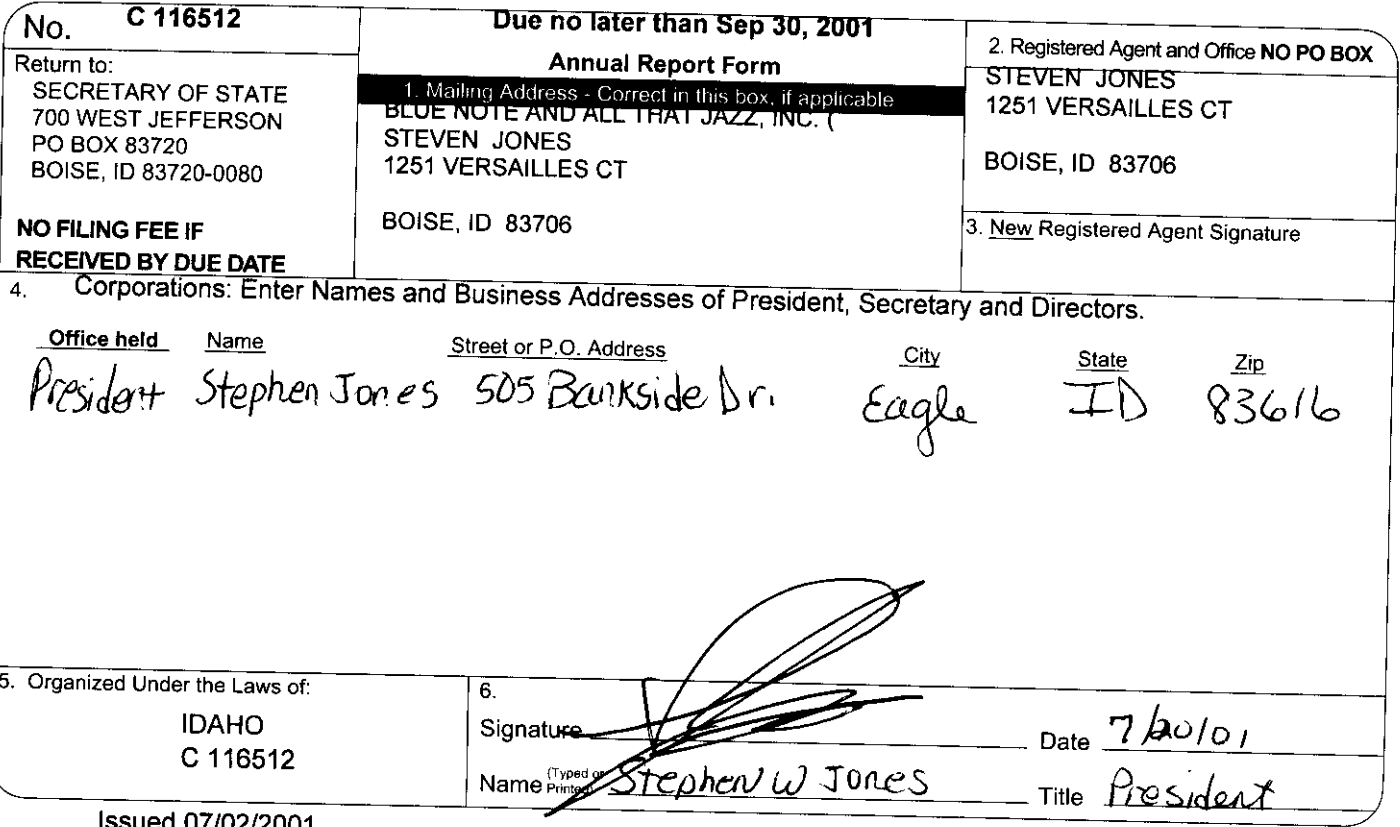 No. C 116512
Return to:
SECRETARY OF STATE
700 WEST JEFFERSON
PO BOX 83720
BOISE, ID 83720-0080
NO FILING FEE IF
RECEIVED BY DUE DATE
Due no later than Sep 30, 2001
Annual Report Form
1. Mailing Address - Correct in this box, if applicable
BLUE NOTE AND ALL THAT JAZZ, INC. (
STEVEN JONES
1251 VERSAILLES CT
BOISE, ID 83706
2. Registered Agent and Office NO PO BOX
STEVEN JONES
1251 VERSAILLES CT
BOISE, ID 83706
3. New Registered Agent Signature
4. Corporations: Enter Names and Business Addresses of President, Secretary and Directors.
Office held Name Street or P.O. Address City State Zip
President Stephen Jones 505 Bankside Dr. Eagle ID 83616
5. Organized Under the Laws of:
IDAHO
C 116512
6.
Signature Date 7/20/01
Name (Typed or Printed) Stephen W Jones Title President
Issued 07/02/2001